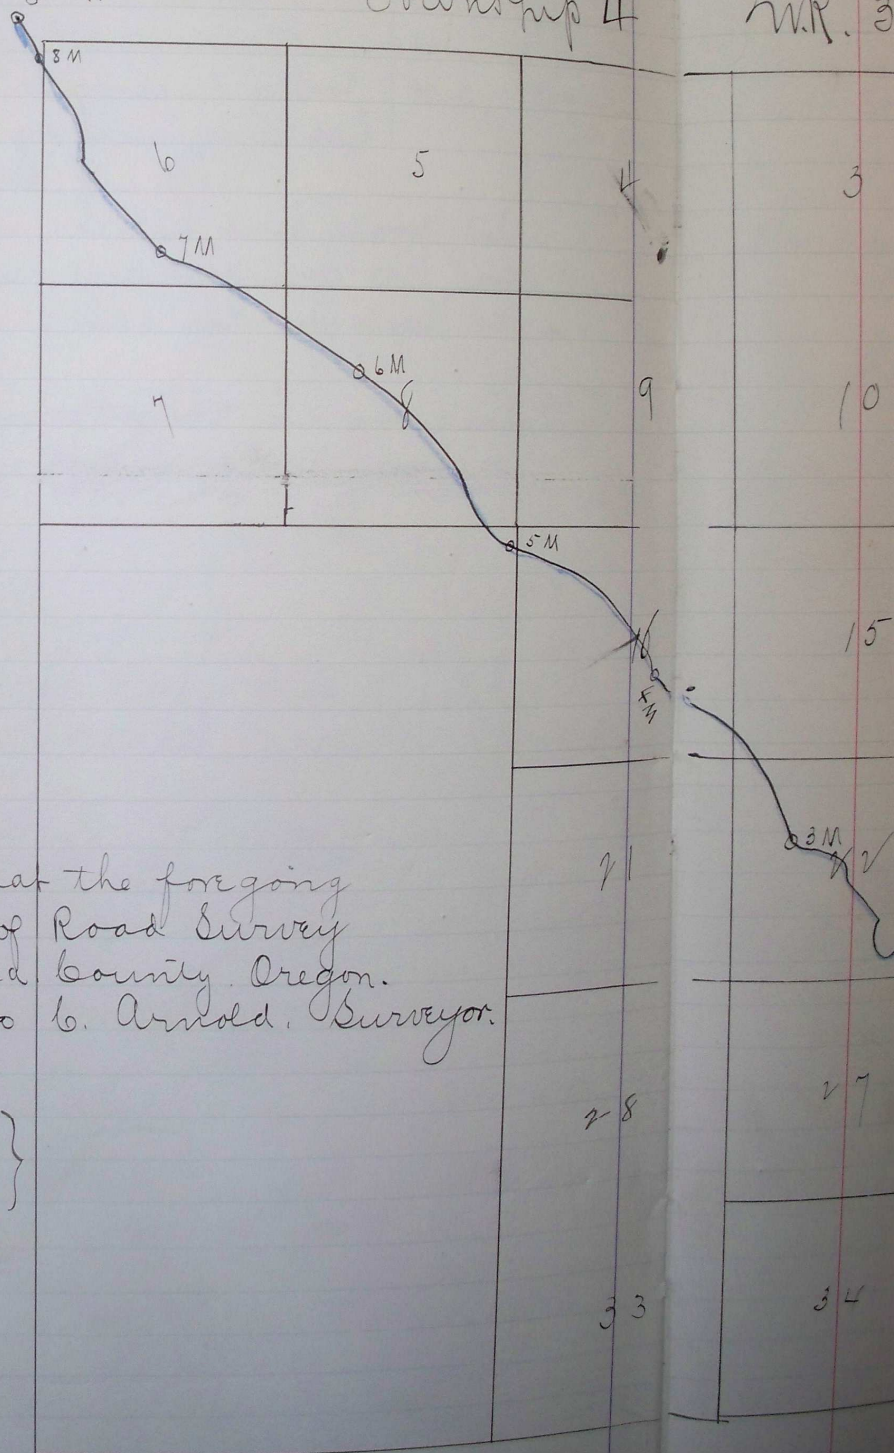 Township 4 W.R. 3
8M
6 5 4 3
7M
6M
7 8 9 10
5M
16 15
4M
3M
21 22
at the foregoing
of Road Survey
d County Oregon.
o C. Arnold. Surveyor.
28 27
33 34